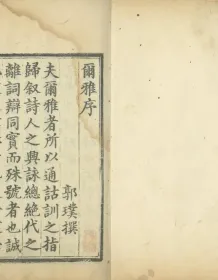 爾雅序
郭璞撰
夫爾雅者所以通詁訓之指
歸叙詩人之興詠總絶代之
離詞辯同實而殊號者也誠